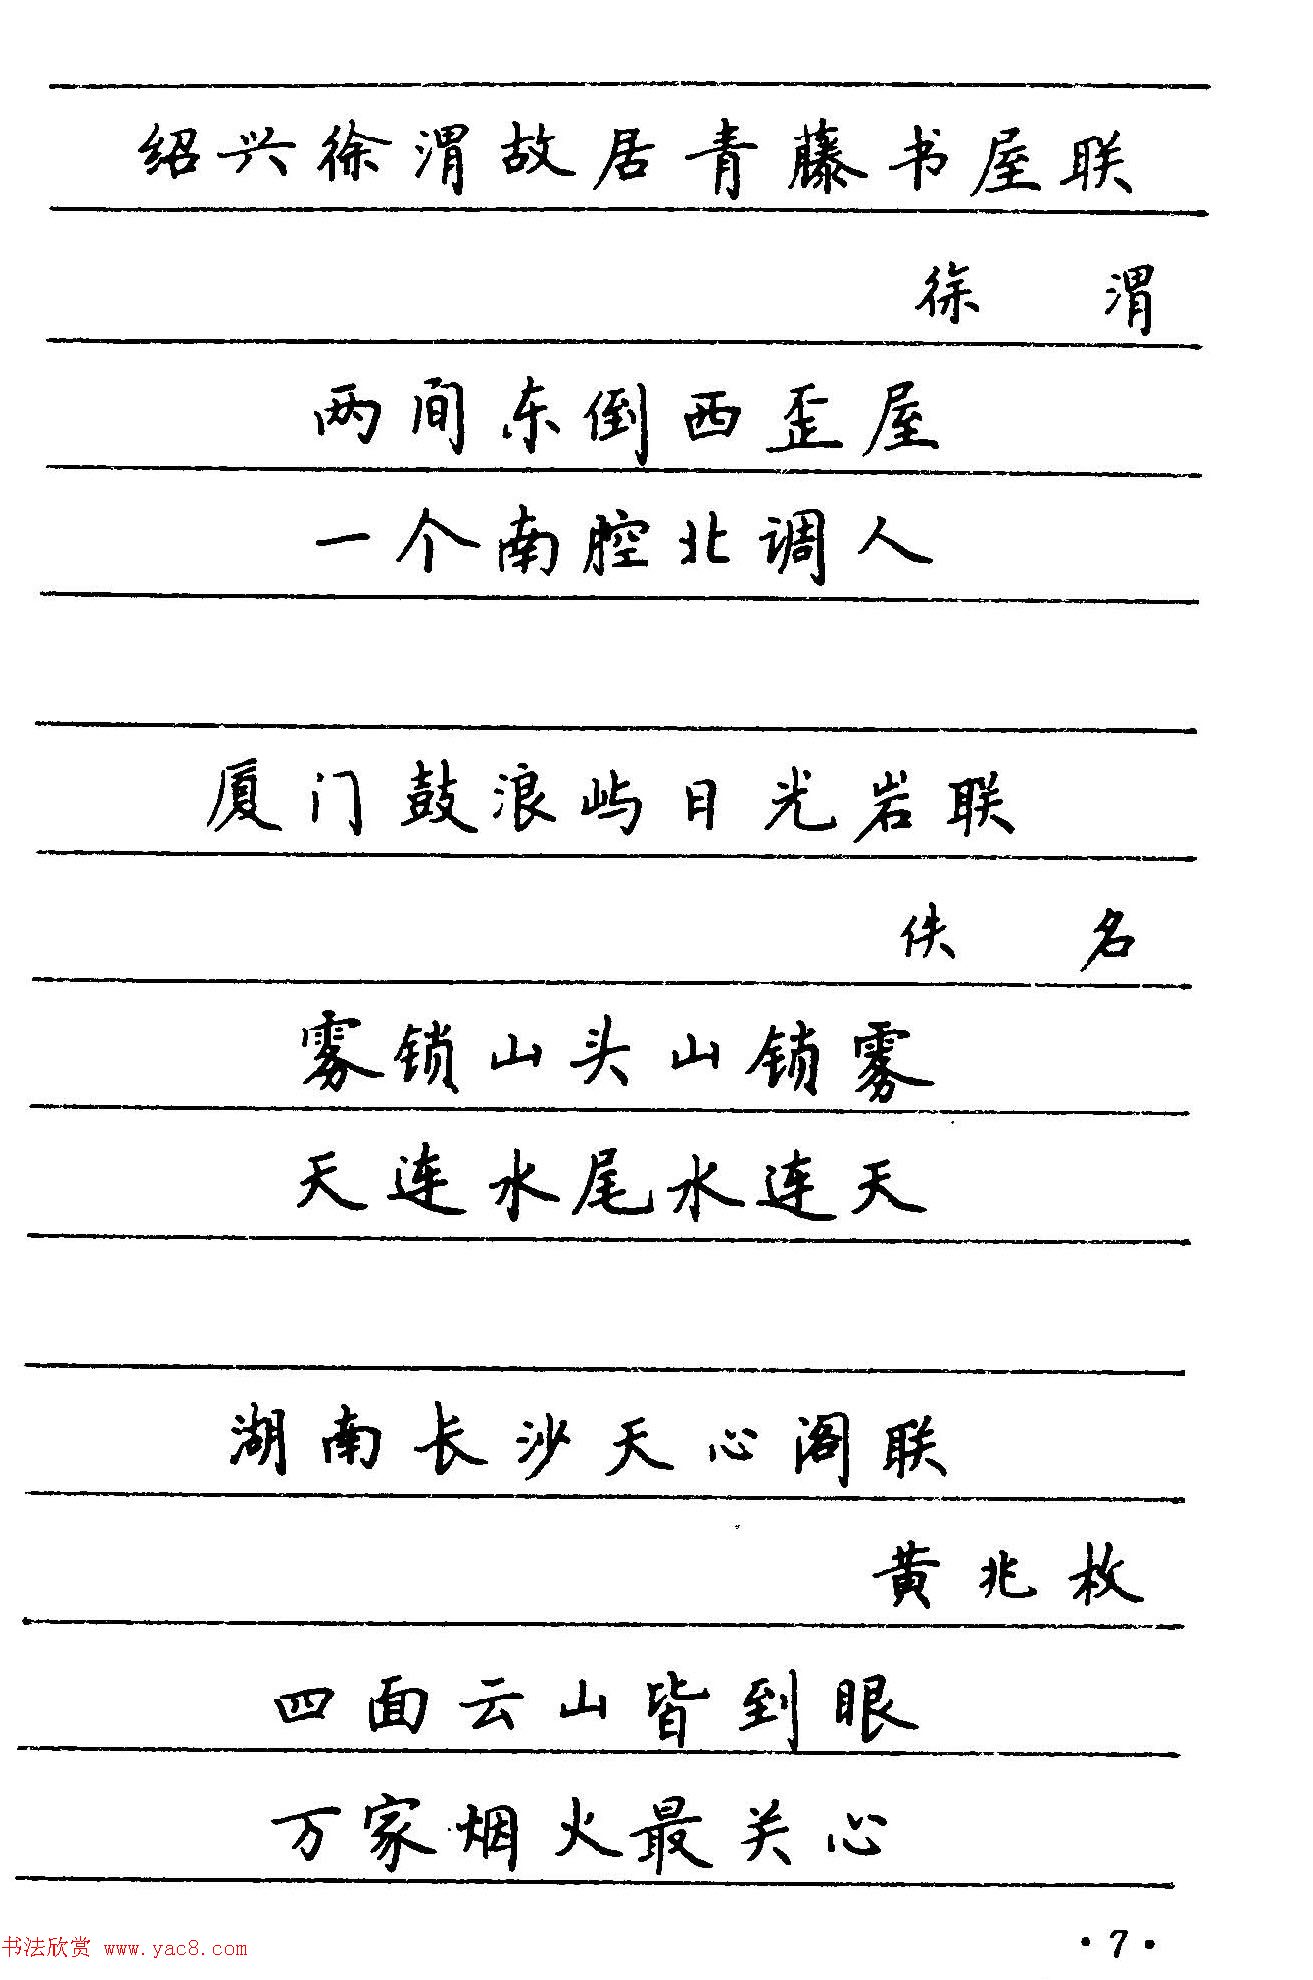 绍兴徐渭故居青藤书屋联
徐 渭
两间东倒西歪屋
一个南腔北调人
厦门鼓浪屿日光岩联
佚 名
雾锁山头山锁雾
天连水尾水连天
湖南长沙天心阁联
黄兆枚
四面云山皆到眼
万家烟火最关心
书法欣赏 www.yac8.com
·7·